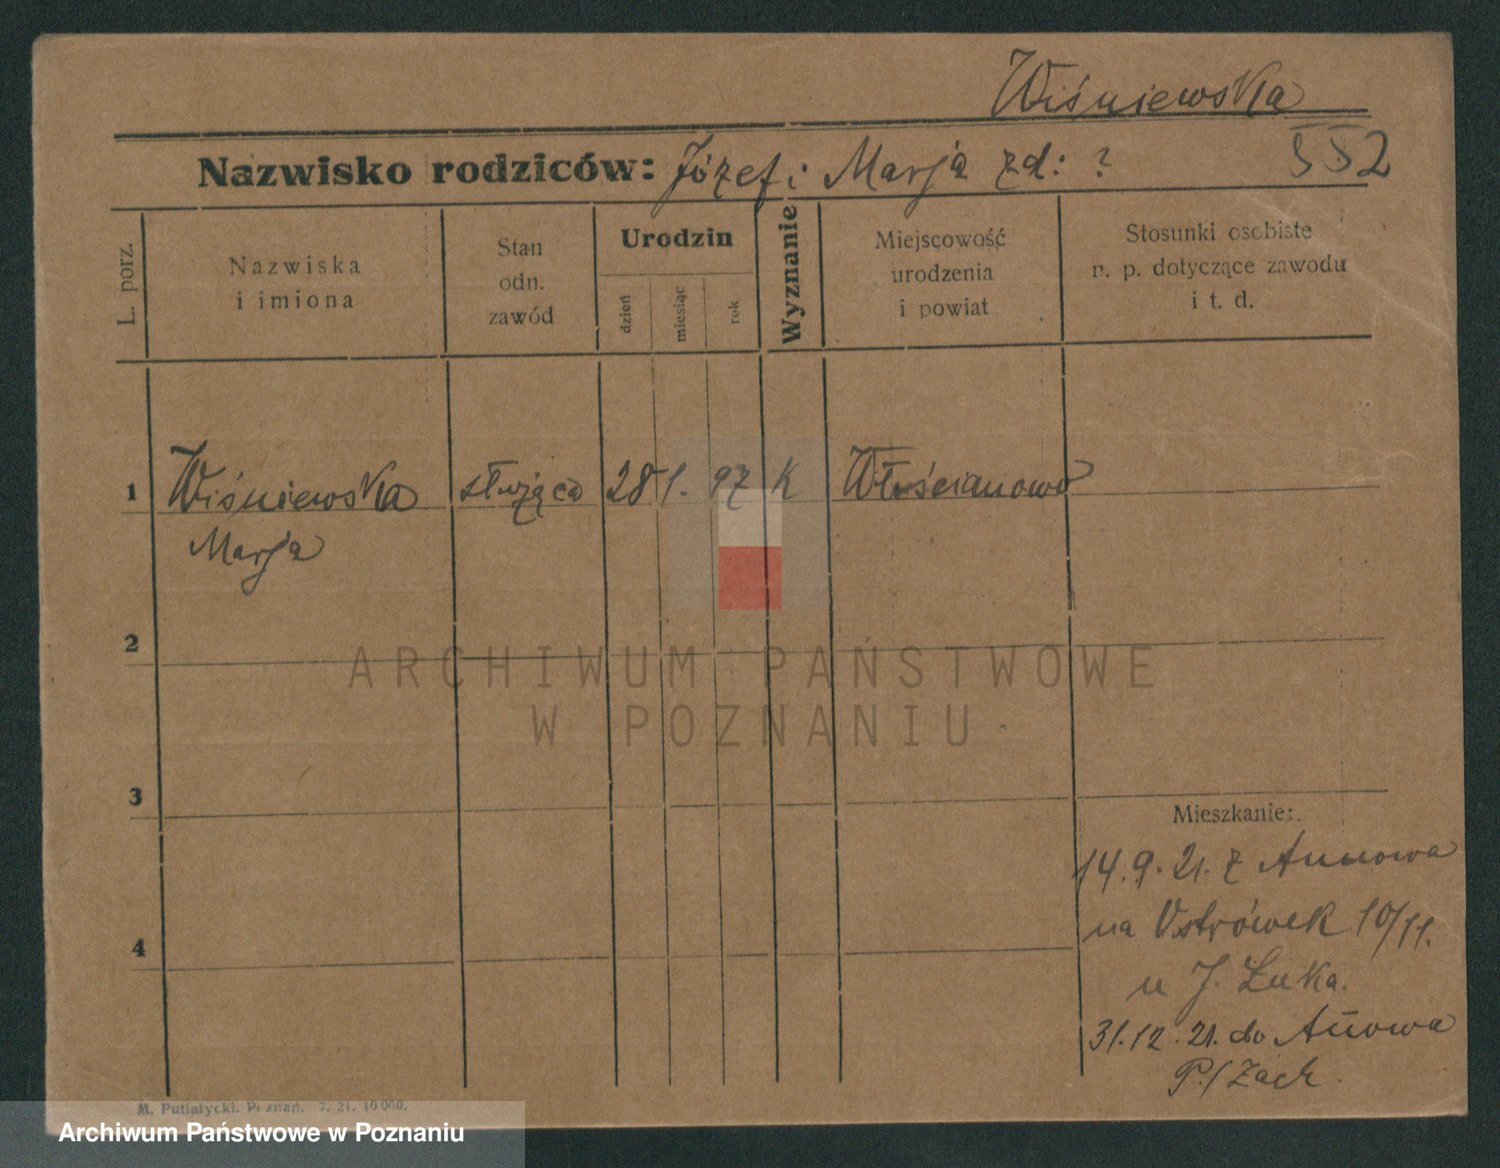 Wiśniewska
Nazwisko rodziców: Józef i Marja zd: ?
552
L. porz.
Nazwiska
i imiona
Stan
odn.
zawód
Urodzin
dzień
miesiąc
rok
Wyznanie
Miejscowość
urodzenia
i powiat
Stosunki osobiste
n. p. dotyczące zawodu
i t. d.
1 Wiśniewska służąca 28 1. 97 K Włościanowo
Marja
2
3
4
Mieszkanie:
14.9.21. z Annowa
na Ostrówek 10/11.
u J. Luka.
31.12.21. do Añowa
P./Zach.
M. Putiatycki. Poznań. 7. 21. 10 000.
ARCHIWUM PAŃSTWOWE
W POZNANIU
Archiwum Państwowe w Poznaniu